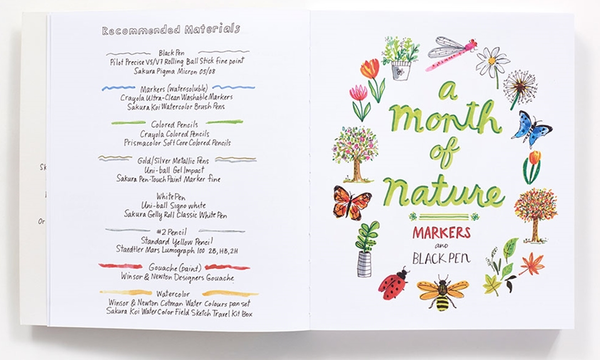 Recommended Materials
Black Pen
Pilot Precise V5/V7 Rolling Ball Stick fine point
Sakura Pigma Micron 05/08
Markers (watersoluble)
Crayola Ultra-Clean Washable Markers
Sakura Koi Watercolor Brush Pens
Colored Pencils
Crayola Colored Pencils
Prismacolor Soft Core Colored Pencils
Gold/Silver Metallic Pens
Uni-ball Gel Impact
Sakura Pen-Touch Paint Marker fine
White Pen
Uni-ball Signo white
Sakura Gelly Roll Classic White Pen
#2 Pencil
Standard Yellow Pencil
Staedtler Mars Lumograph 100 2B, HB, 2H
Gouache (paint)
Winsor & Newton Designers Gouache
Watercolor
Winsor & Newton Cotman Water Colours pan set
Sakura Koi Water Color Field Sketch Travel Kit Box
a
month
of
nature
MARKERS
and
BLACK PEN